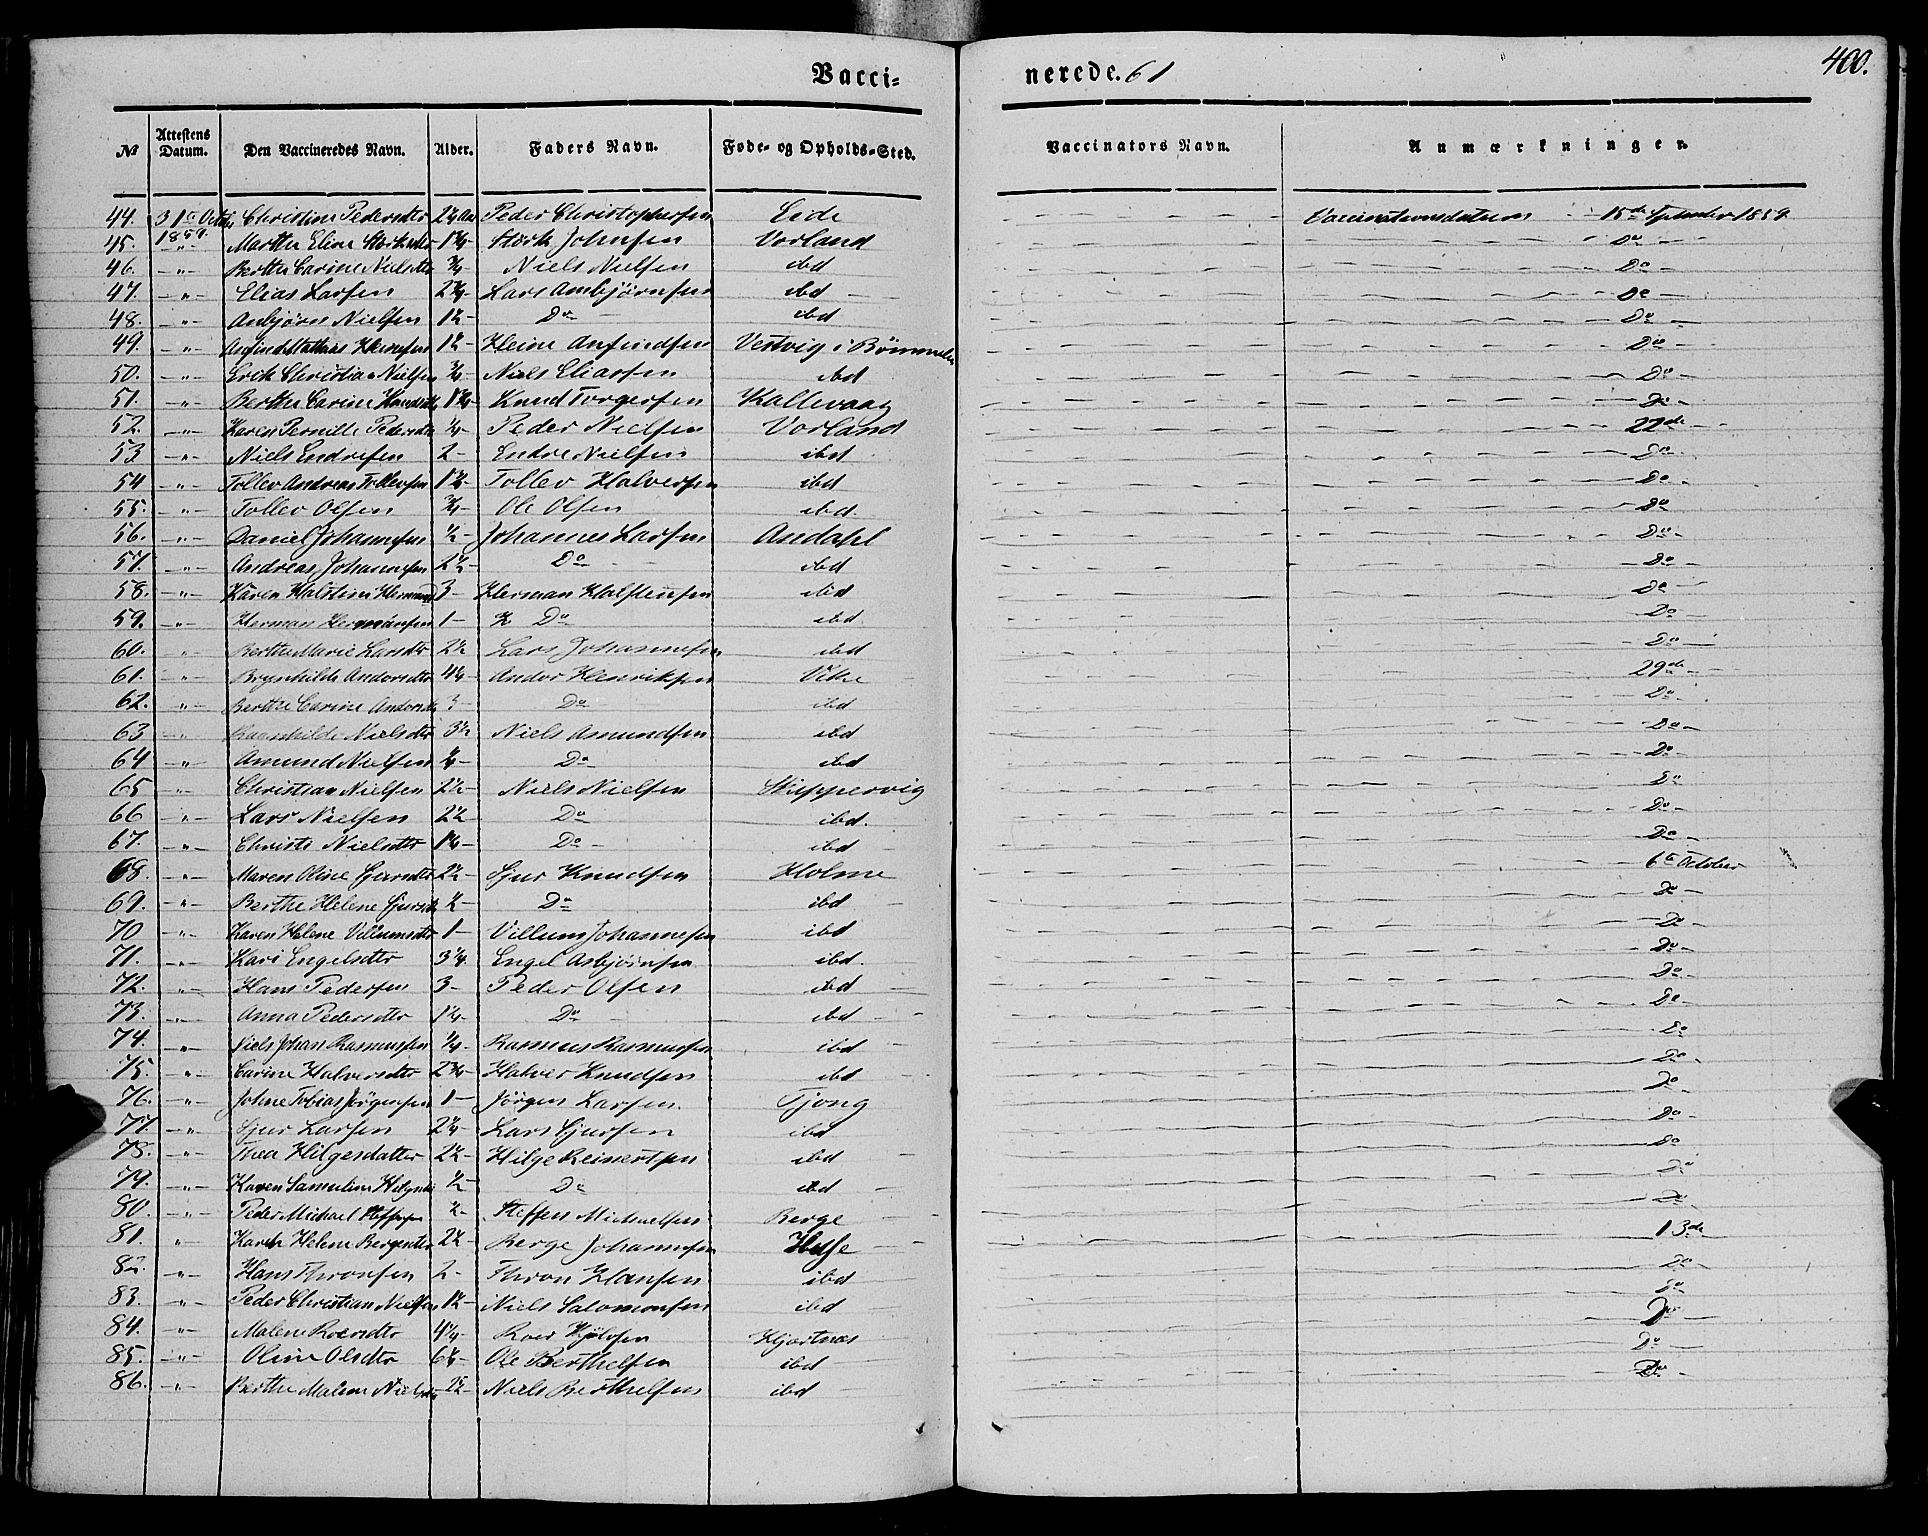 Vacci= nerede. 61 400.
No Attestens Datum. Den Vaccineredes Navn. Alder. Faders Navn. Føde- og Opholds-Sted. Vaccinators Navn. Anmærkninger.
44. 31te Octbr 1859. Christine Pedersdtr 2¼ Aar Peder Christophersen Eide Vaccinationsdatum 15de September 1859
45. -"- Marthe Eline Størksdtr Størk Johnsen Vorland Do
46. -"- Berthe Carine Nielsdtr ¾ Niels Nielsen ibd Do
47. -"- Elias Larsen 2¾ Lars Ambjørnsen ibd Do
48. -"- Anbjørn Nielsen 1½ Do ibd Do
49. -"- Anfind Mathias Heinesen 1½ Heine Anfindsen Vestvig i Bømmelen Do
50. -"- Erik Christian Nielsen ¾ Niels Eliassen ibd Do
51. -"- Berthe Carine Knudsdtr 1¾ Knud Torgersen Kallevaag Do
52. -"- Karen Pernille Pedersdtr ¼ Peder Nielsen Vorland 22de
53 -"- Niels Endresen 2 Endre Nielsen ibd Do
54 -"- Tollev Andreas Tollevsen 1½ Tollev Halversen ibd Do
55. -"- Tollev Olsen ¾ Ole Olsen ibd. Do
56. -"- Daniel Johannesen ½ Johannes Larsen Andahl Do
57. -"- Andreas Johannesen 2½ Do ibd Do
58. -"- Karen Halstine Hermansd 3 Herman Halstensen ibd Do
59. -"- Herman Hermansen 1 Do ibd Do
60. -"- Berthe Marie Larsdtr 2½ Lars Johannesen ibd Do
61. -"- Brynhilde Andersdtr 4¼ Ander Henriksen Vike 29de
62. -"- Berthe Carine Andersdtr 3 Do ibd Do
63 -"- Ragnhilde Nielsdtr 3½ Niels Amundsen ibd Do
64 -"- Amund Nielsen ¼ Do ibd Do
65 -"- Christian Nielsen 2½ Niels Nielsen Skippervig Do
66 -"- Lars Nielsen 2½ Do ibd. Do
67. -"- Christi Nielsdtr 1¼ Do ibd Do
68. -"- Maren Oline Sjursdtr 2½ Sjur Knudsen Holme 6te October
69. -"- Berthe Helene Sjursdtr ½ Do ibd Do
70 -"- Karen Helene Villumsdtr 1 Villum Johannesen ibd Do
71. -"- Kari Engelsdtr 3¼ Engel Asbjørnsen ibd. Do
72. -"- Hans Pedersen 3 Peder Olsen ibd Do
73. -"- Anna Pedersdtr 1¼ Do ibd Do
74. -"- Niels Johan Rasmussen ¼ Rasmus Rasmussen ibd Do
75. -"- Carine Halversdtr 2¾ Halver Knudsen ibd Do
76. -"- Johne Tobias Jørgensen 1 Jørgen Larsen. Tjong Do
77. -"- Sjur Larsen 2¼ Lars Sjursen ibd Do
78. -"- Thea Hilgesdatter 2½ Hilge Reinertsen ibd Do
79. -"- Karen Samuline Hilgesdtr ½ Do ibd Do
80. -"- Peder Michael Steffensen ½ Steffen Michaelsen Berge Do
81. -"- Karen Helene Bergesdtr 2½ Berge Johannesen 13de
82. -"- Hans Thronsen 2 Thron Hansen ibd Do
83. -"- Peder Christian Nielsen 1½ Niels Salomonsen ibd Do
84. -"- Malene Roersdtr 4¼ Roer Hjertnæs Do
85. -"- Oline Olsdtr Ole Berthelsen ibd Do
86. -"- Berthe Malene Nielsdtr 2½ Niels Berthelsen ibd Do